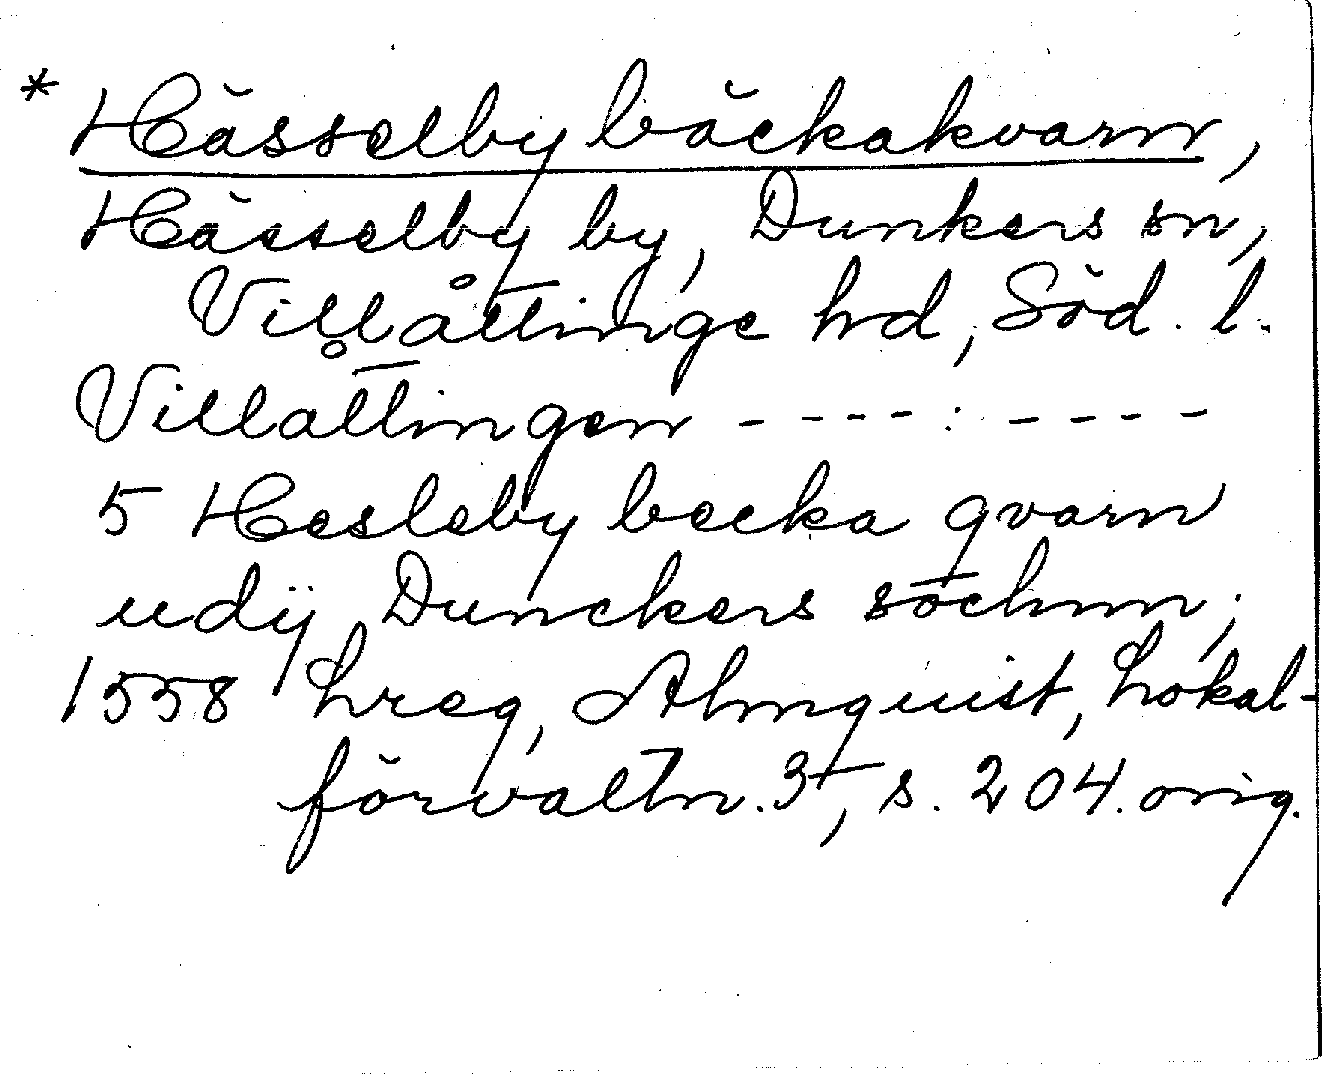 * Hässelby bäckakvarn,
Hässelby by, Dunkers sn,
Villåttinge hd, Söd. l.
Villåttingen - - - - : - - - -
5 Hesleby becka qvarn
udÿ Dunckers sochnn;
1558 hreg, Almquist, Lokal-
förvaltn. 3, s. 204. orig.